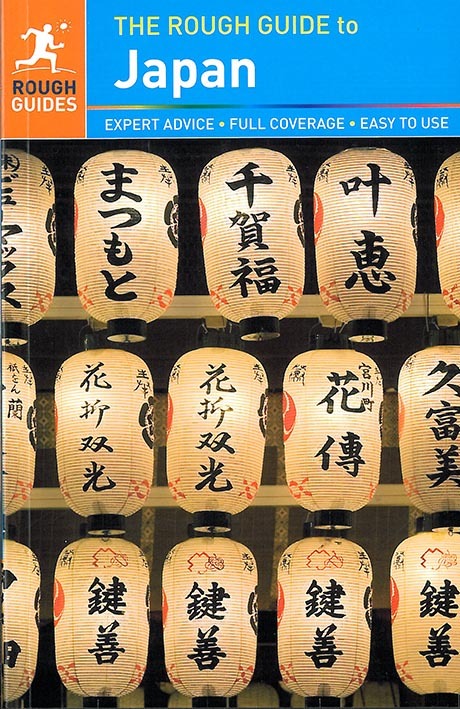 ROUGH
GUIDES
THE ROUGH GUIDE to
Japan
EXPERT ADVICE • FULL COVERAGE • EASY TO USE
まつもと
千賀福
叶恵
花抑双光
花抑双光
宮川町
花傳
久富美
鍵善
鍵善
鍵善
鍵善